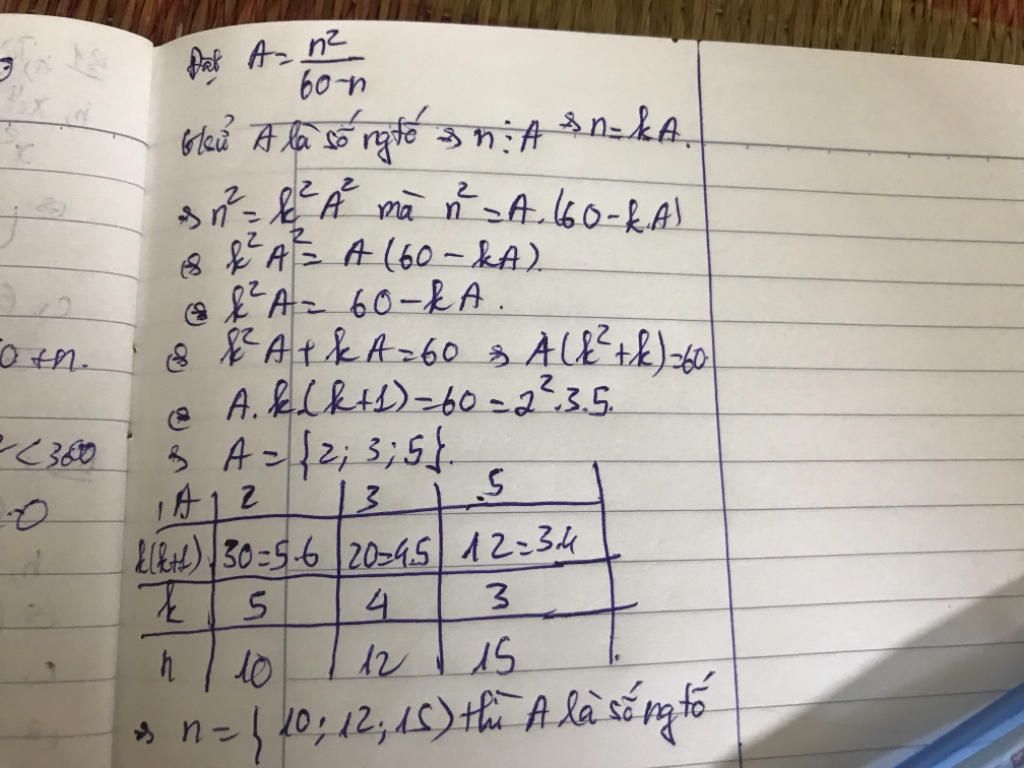 Đặt A = n²/(60-n)
Giả sử A là số ngtố => n ⋮ A => n = kA.
=> n² = k²A² mà n² = A.(60-k.A)
<=> k²A² = A(60-kA).
<=> k²A = 60-kA.
0+n.
<=> k²A + kA = 60 => A(k²+k)=60
<=> A.k.(k+1) = 60 = 2².3.5.
<360
=> A = {2; 3; 5}.
-0
A 2 3 5
k(k+1) 30=5.6 20=4.5 12=3.4
k 5 4 3
n 10 12 15
=> n = {10; 12; 15) thì A là số ngtố